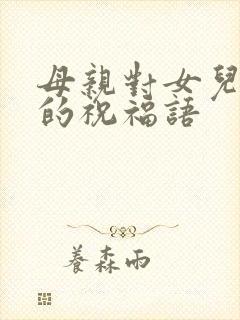 母親對女兒
的祝福語
養森雨